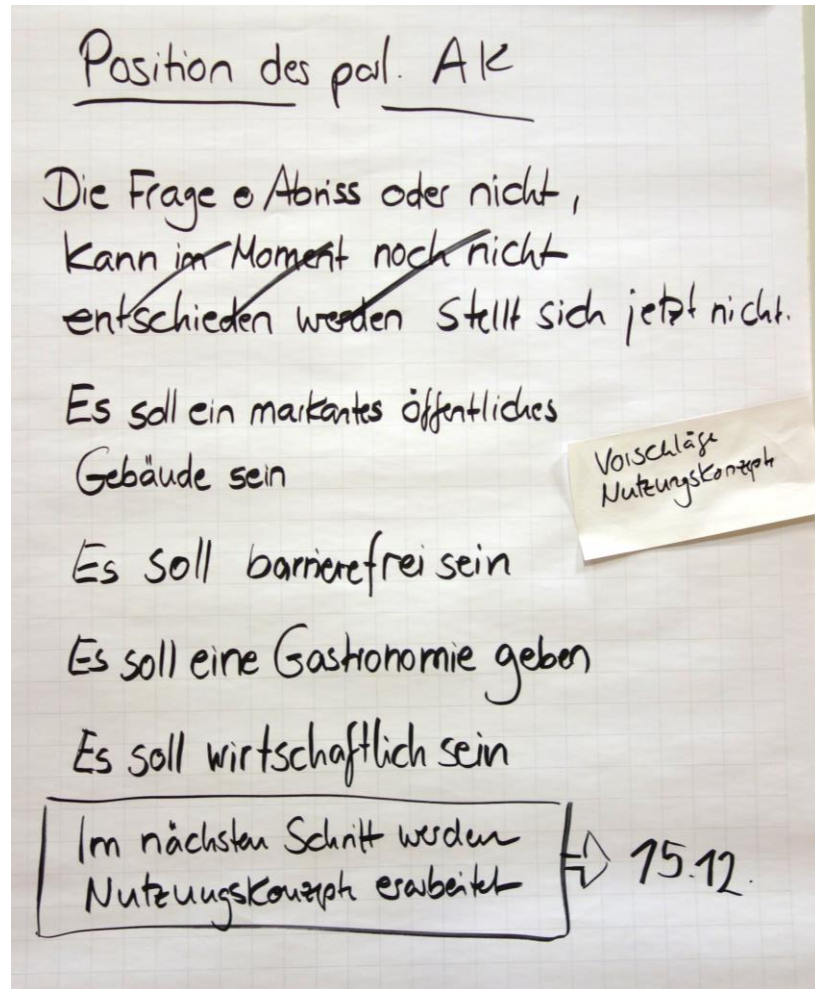 Position des parl. AK
Die Frage Abriss oder nicht,
kann im Moment noch nicht
entschieden werden Stellt sich jetzt nicht.
Es soll ein markantes öffentliches
Gebäude sein
Vorschläge
Nutzungskonzepte
Es soll barrierefrei sein
Es soll eine Gastronomie geben
Es soll wirtschaftlich sein
Im nächsten Schritt werden
Nutzungskonzepte erarbeitet
⇨ 15.12.